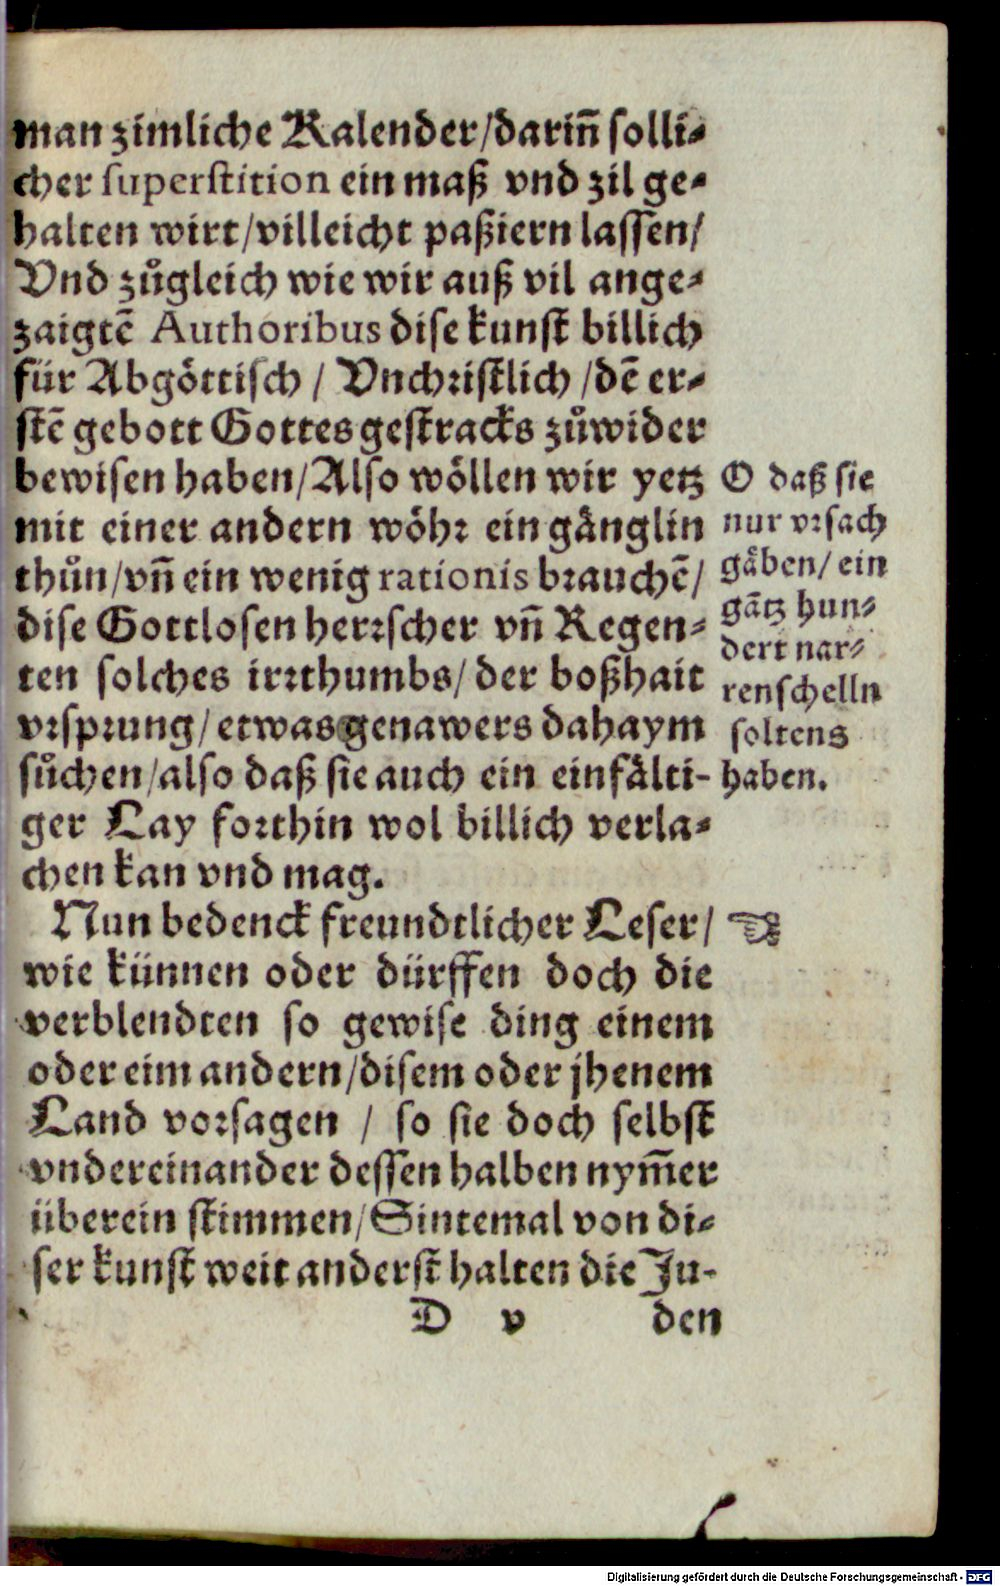 man zimliche Kalender/darin̄ solli-
cher superstition ein maß vnd zil ge-
halten wirt/villeicht paßiern lassen/
Vnd zůgleich wie wir auß vil ange-
zaigtē Authoribus dise kunst billich
für Abgöttisch / Vnchristlich /dē er-
stē gebott Gottes gestracks zůwider
bewisen haben/Also wöllen wir yetz
mit einer andern wöhr ein gänglin
thůn/vn̄ ein wenig rationis brauchē/
dise Gottlosen herrscher vn̄ Regen-
ten solches irrthumbs/der boßhait
vrsprung/etwas genawers dahaym
sůchen/also daß sie auch ein einfälti-
ger Lay forthin wol billich verla-
chen kan vnd mag.
O daß sie
nur vrsach
gäben/ ein
gātz hun-
dert nar-
renschelln
soltens
haben.
Nun bedenck freundtlicher Leser/ ☜
wie künnen oder dürffen doch die
verblendten so gewise ding einem
oder eim andern/disem oder jhenem
Land vorsagen / so sie doch selbst
vndereinander dessen halben nym̄er
überein stimmen/Sintemal von di-
ser kunst weit anderst halten die Ju-
D v den
Digitalisierung gefördert durch die Deutsche Forschungsgemeinschaft - DFG